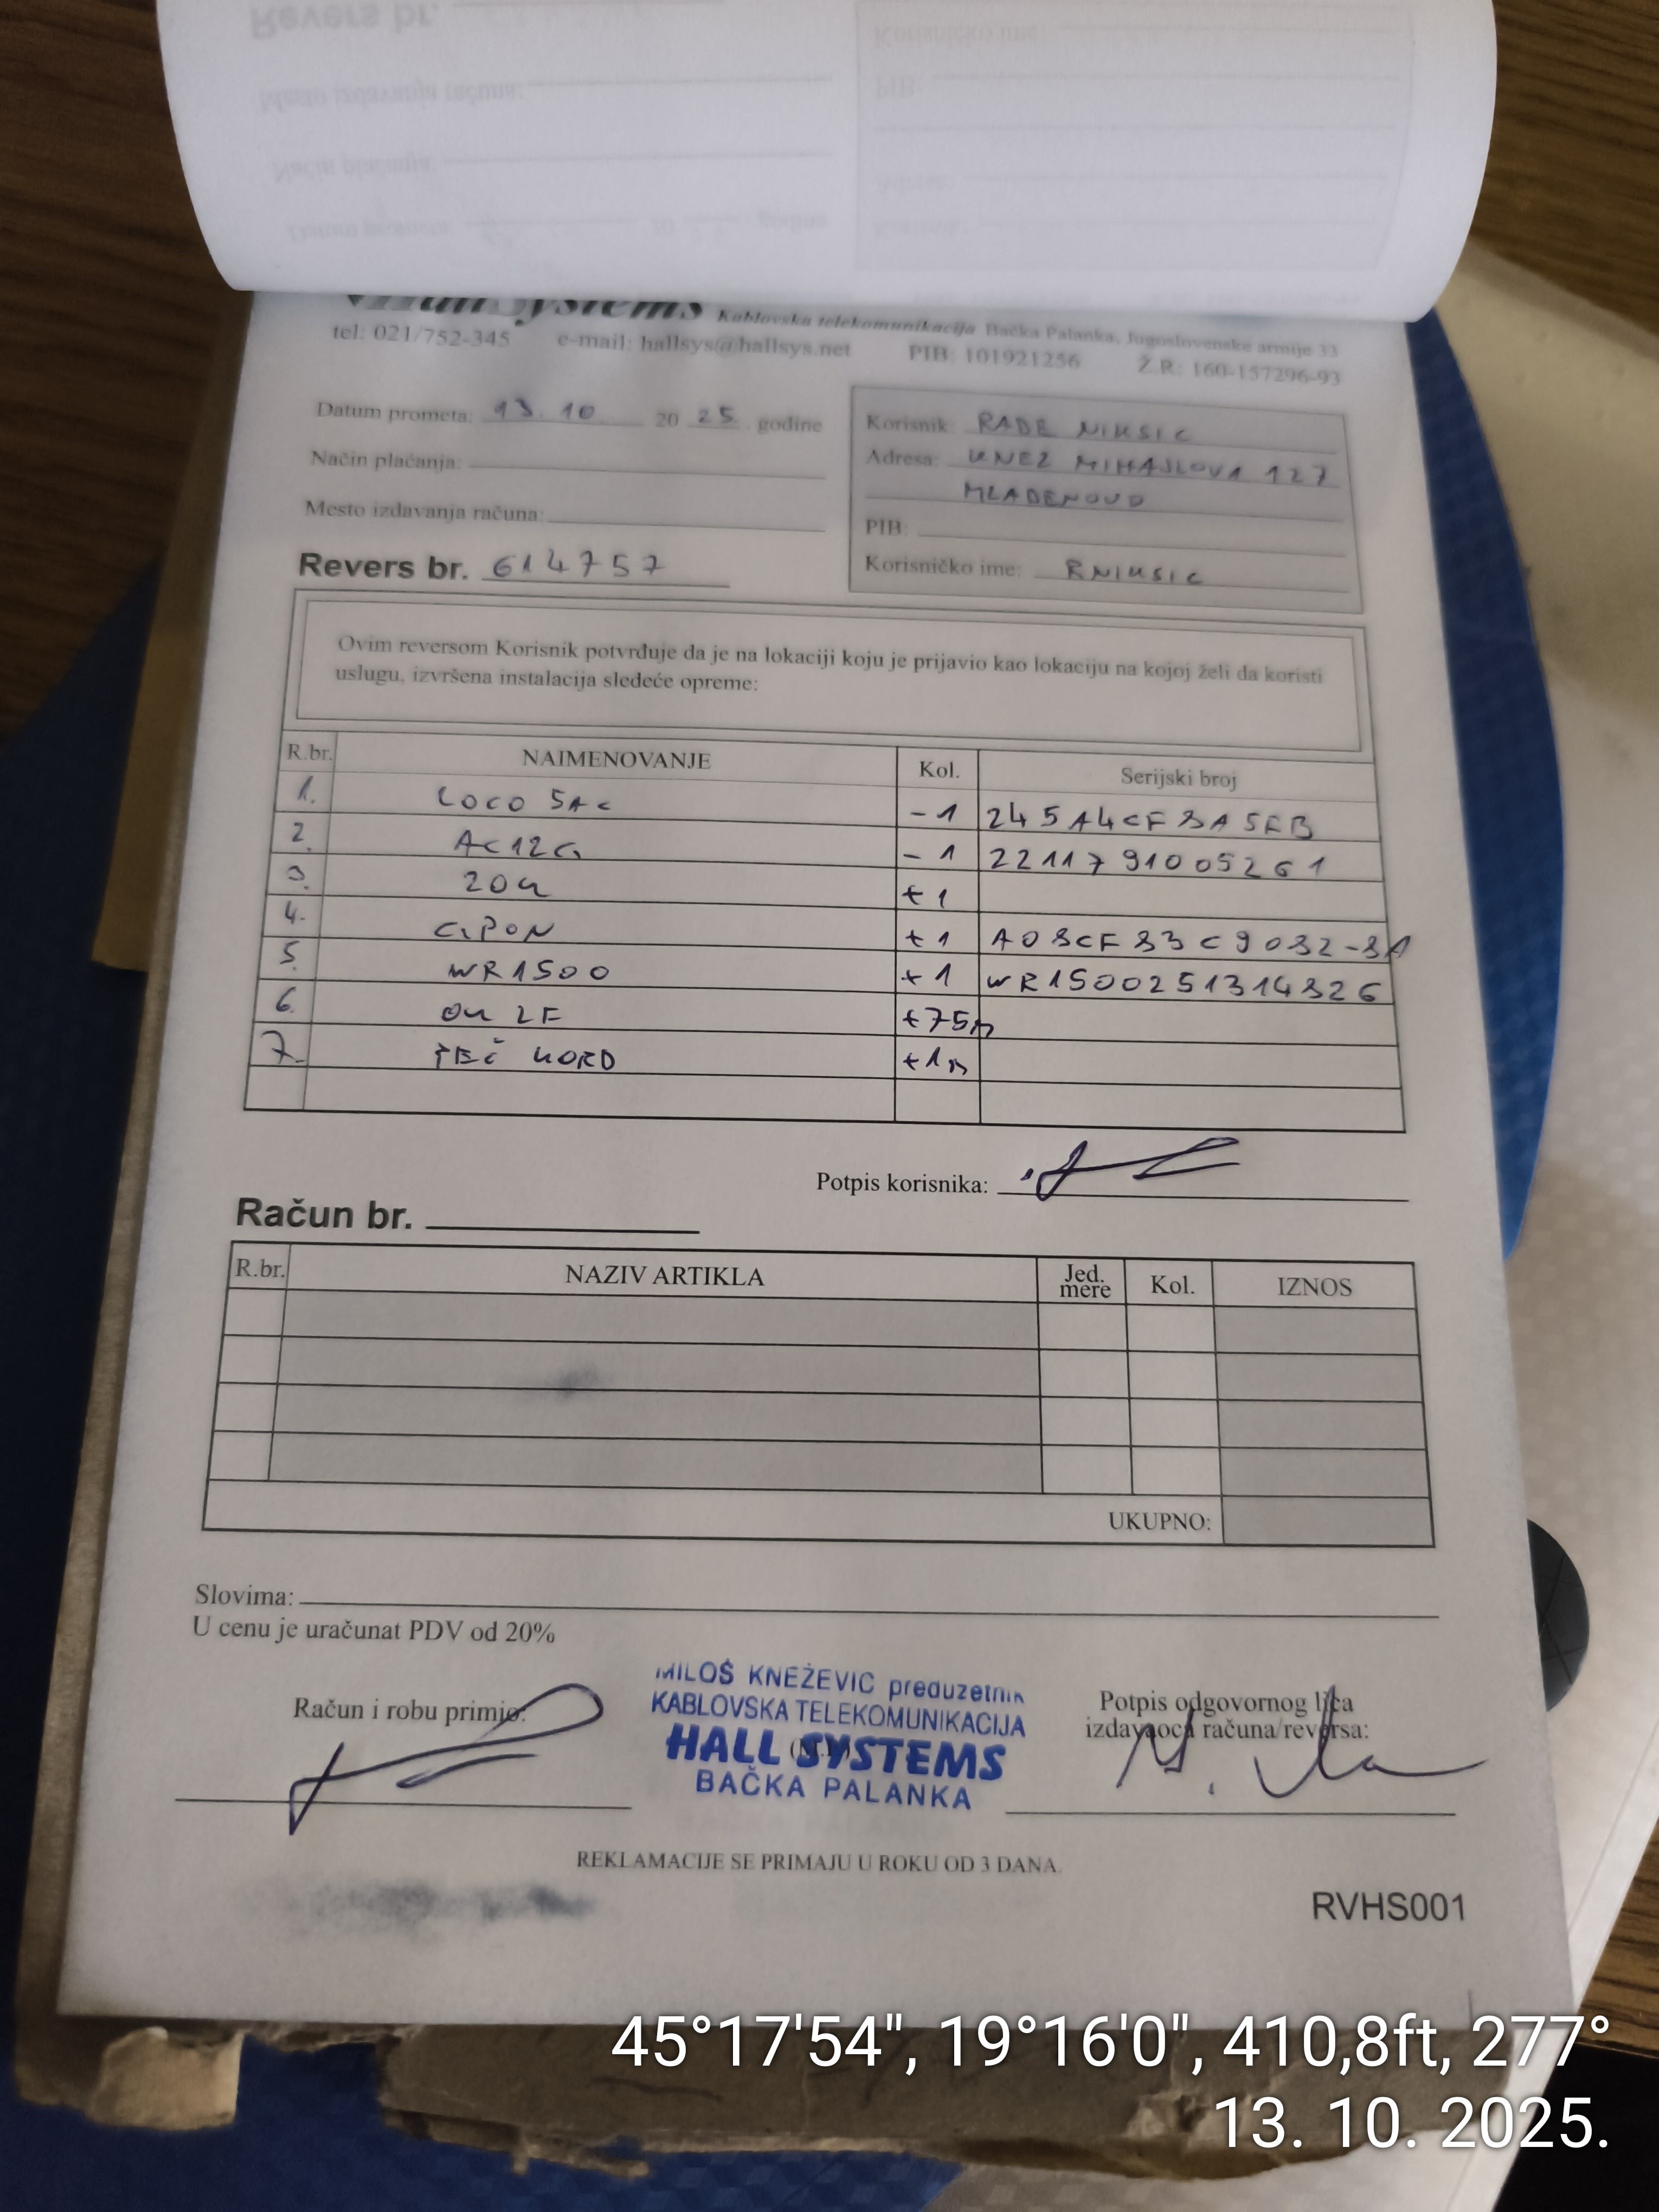 HallSystems Kablovska telekomunikacija Bačka Palanka, Jugoslovenske armije 33
tel: 021/752-345 e-mail: hallsys@hallsys.net PIB: 101921256 Ž.R: 160-157296-93
Datum prometa: 13. 10. 20 25. godine
Način plaćanja:
Mesto izdavanja računa:
Korisnik: RADE NIKSIC
Adresa: KNEZ MIHAJLOVA 127
MLADENOVO
PIB:
Korisničko ime: RNIKSIC
Revers br. 614757
Ovim reversom Korisnik potvrđuje da je na lokaciji koju je prijavio kao lokaciju na kojoj želi da koristi
uslugu, izvršena instalacija sledeće opreme:
R.br. NAIMENOVANJE Kol. Serijski broj
1. LOCO 5AC -1 245A4CF8A5FB
2. AC12G -1 2211791005261
3. ZOK +1
4. GPON +1 A08CF83C9082-8A
5. WR1500 +1 WR1500251314826
6. OK 2F +75m
7. PEČ KORD +1m
Potpis korisnika:
Račun br.
R.br. NAZIV ARTIKLA Jed. mere Kol. IZNOS
UKUPNO:
Slovima:
U cenu je uračunat PDV od 20%
Račun i robu primio:
MILOŠ KNEŽEVIĆ preduzetnik
KABLOVSKA TELEKOMUNIKACIJA
HALL SYSTEMS
BAČKA PALANKA
Potpis odgovornog lica
izdavaoca računa/reversa:
REKLAMACIJE SE PRIMAJU U ROKU OD 3 DANA.
RVHS001
45°17'54", 19°16'0", 410,8ft, 277°
13. 10. 2025.